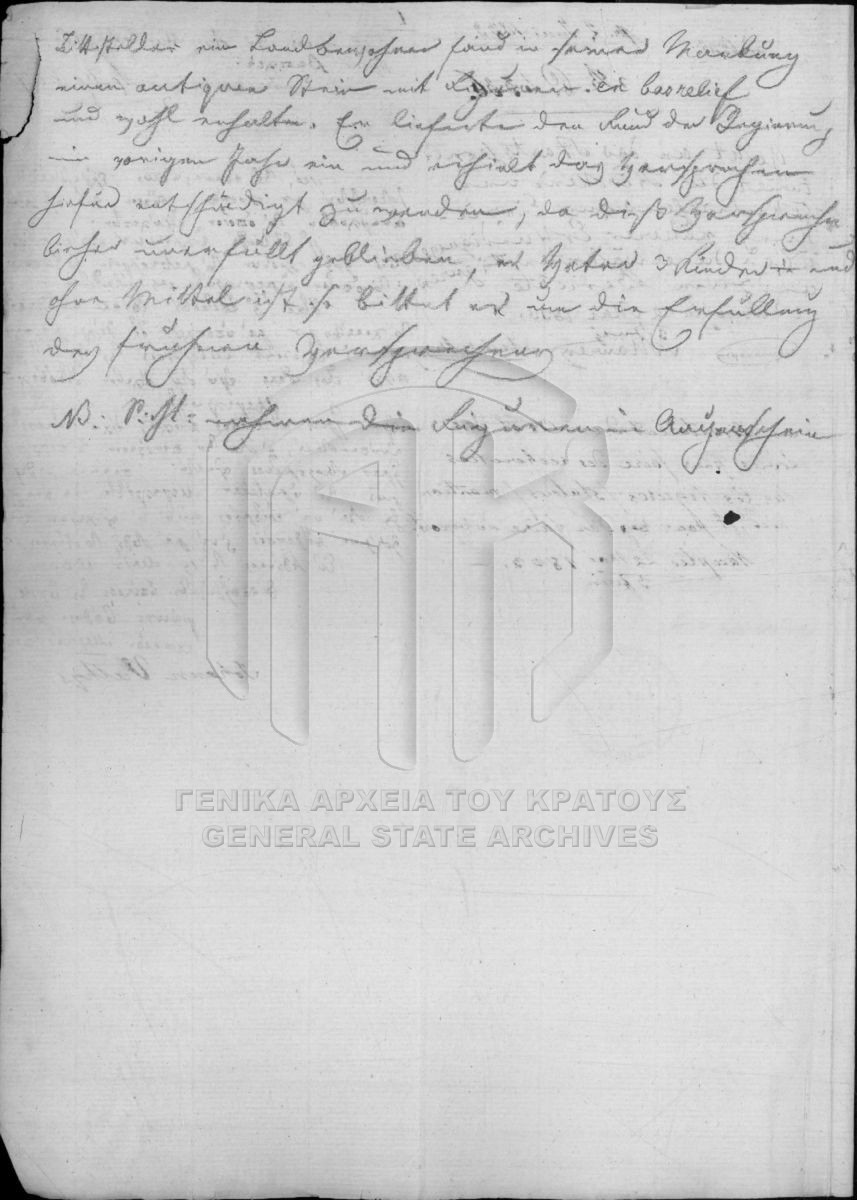 Bittsteller ein Landbewohner fand in seiner Markung
einen antiquen Stein mit Figuren en basrelief
und wohl erhalten. Er lieferte den Fund der Regierung
im vorigen Jahr ein und erhielt das Versprechen
hiefür entschädigt zu werden, da dieß Versprechen
bisher unerfüllt geblieben, er Vater 3 Kinder und
ohne Mittel ist so bittet er um die Erfüllung
des frühern Versprechens
NB: nehmen die Figuren in Augenschein
ΓΕΝΙΚΑ ΑΡΧΕΙΑ ΤΟΥ ΚΡΑΤΟΥΣ
GENERAL STATE ARCHIVES